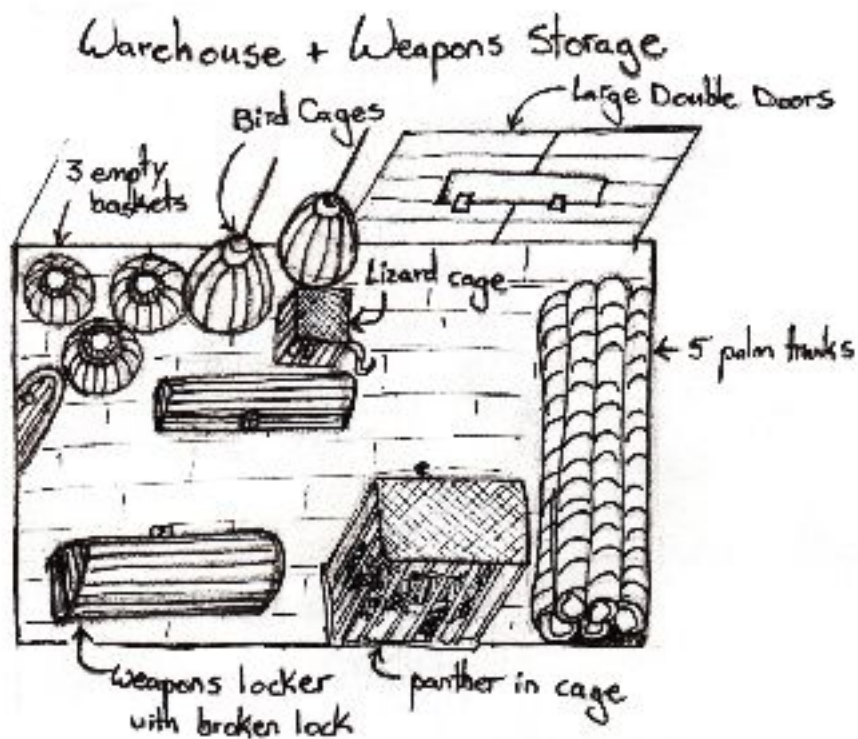 Warehouse + Weapons Storage
Large Double Doors
Bird Cages
3 empty
baskets
Lizard cage
5 palm trunks
weapons locker
with broken lock
panther in cage